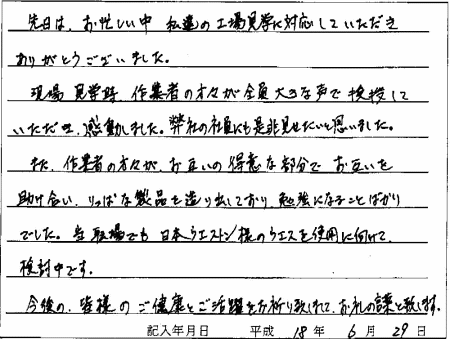 先日は、お忙しい中 私達の工場見学に対応していただき
ありがとうございました。
現場見学時、作業者の方々が全員大きな声で挨拶して
いただき、感動しました。弊社の社員にも是非見せたいと思いました。
また、作業者の方々が、お互いの得意な部分でお互いを
助け合い、りっぱな製品を造り出しており、勉強になることばかり
でした。当職場でも日本ウエストン様のウエスを使用に向けて、
検討中です。
今後の、皆様のご健康とご活躍をお祈り致しまして、お礼の言葉と致します。
記入年月日 平成 18年 6月 29日